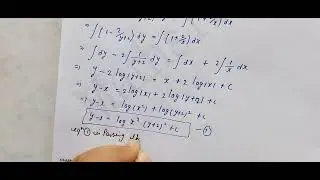 ⇒ ∫(1 - 2/(y+2)) dy = ∫(1 + 2/x) dx
⇒ ∫dy - 2∫ 1/(y+2) dy = ∫dx + 2∫ 1/x dx
⇒ y - 2 log(y+2) = x + 2 log|x| + C
⇒ y-x = 2 log|x| + 2 log(y+2) + C
⇒ y-x = log(x²) + log(y+2)² + C
y-x = log x² (y+2)² + C — ①
eqⁿ ① is Passing